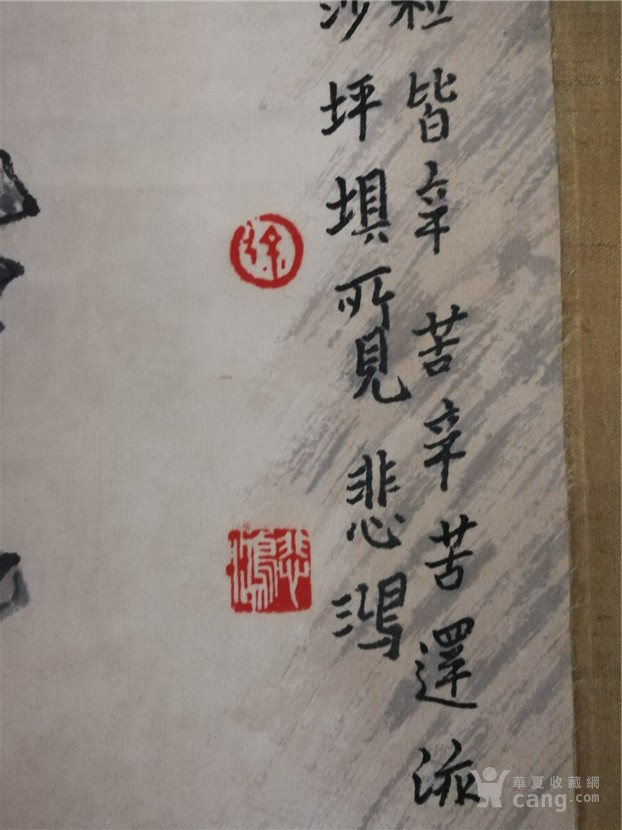 粒皆辛苦辛苦還添
沙坪垻所見 悲鴻
徐
悲鴻
華夏收藏網
cang.com